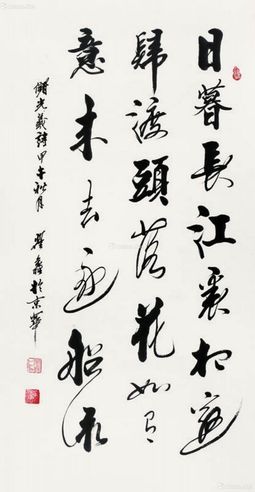 日暮長江裏相邀
歸渡頭落花如有
意来去逐船流
儲光羲詩甲午秋月
鑫於京華